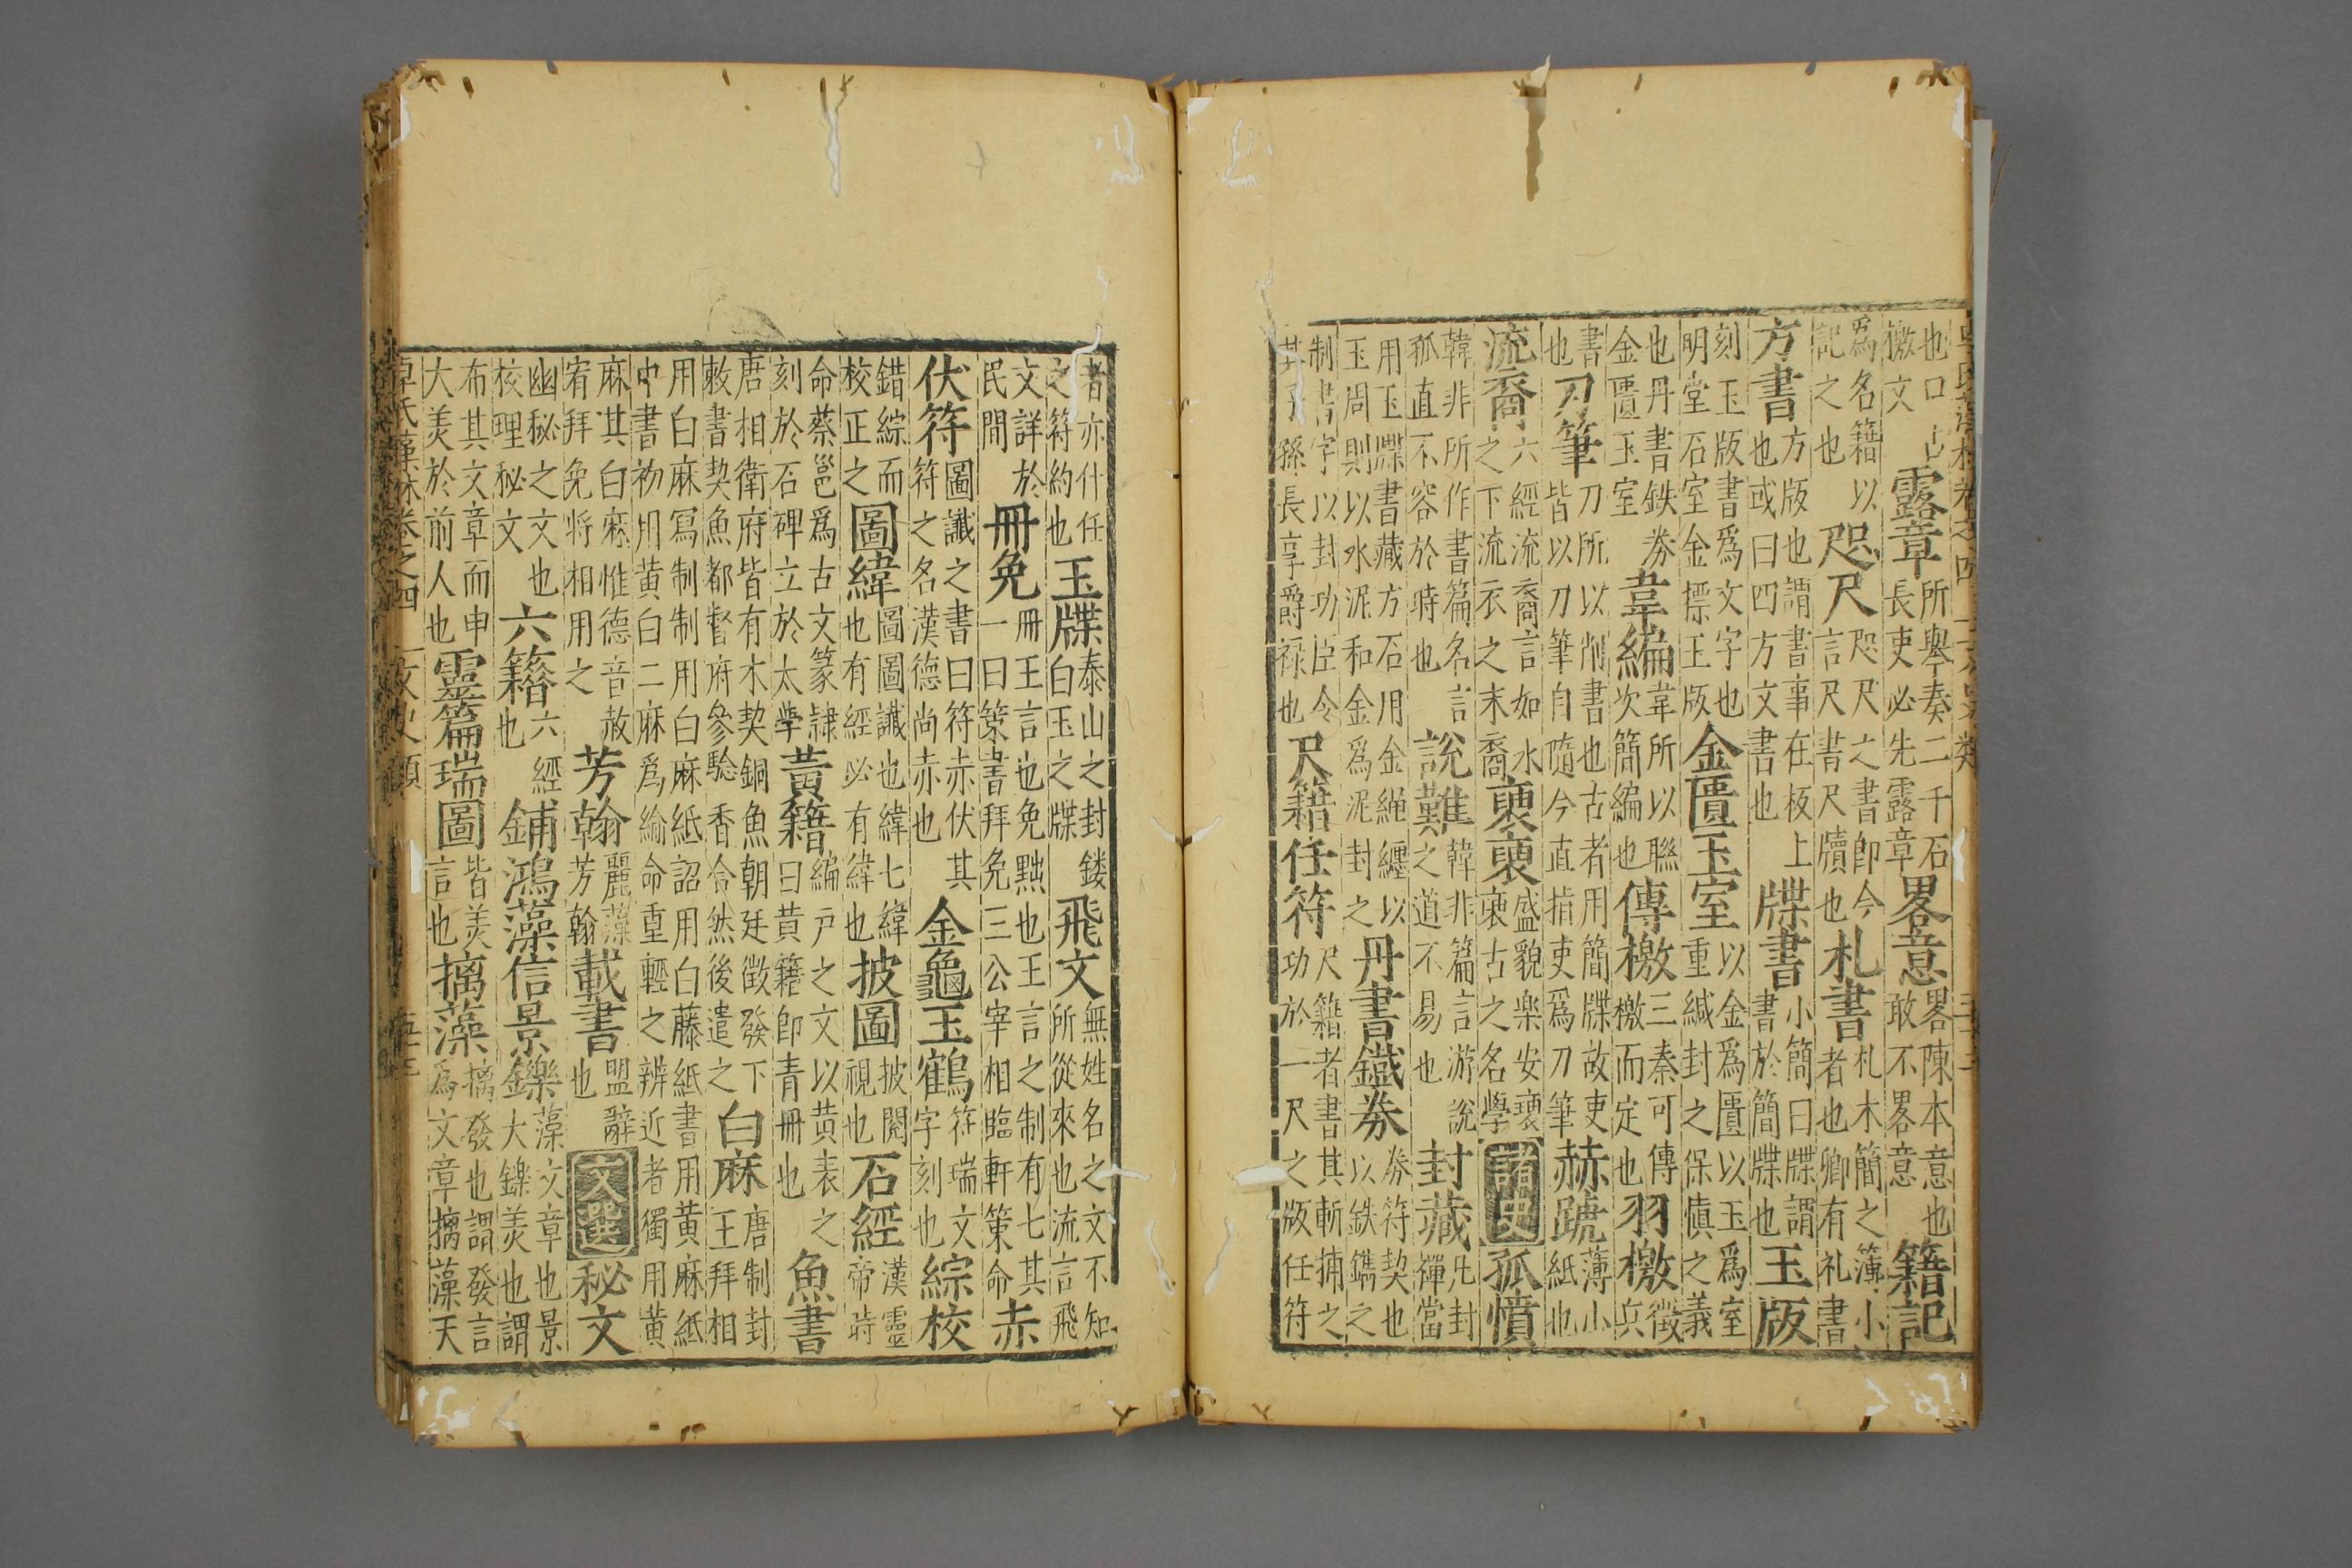 也口
檄文 露章 所舉奏二千石
長吏必先露章 畧意 畧陳本意也
敢不畧意 籍記
爲名籍以
記之也 咫尺 咫尺之書即今
言尺書尺牘也 札書 札木簡之簿小
者也卿有礼書
方書 方版也謂書事在板上
也或曰四方文書也 牒書 小簡曰牒謂
書於簡牒也 玉版
刻玉版書爲文字也
明堂石室金標玉版 金匱玉室 以金爲匱以玉爲室
重緘封之保慎之義
也丹書鉄券
金匱玉室 韋編 韋所以聯
次簡編也 傳檄 三秦可傳
檄而定也 羽檄 徵
兵
書
也 刀筆 刀所以削書也古者用簡牒故吏
皆以刀筆自隨今直指吏爲刀筆 赫蹏 薄小
紙也
流裔 六經流裔言如水
之下流衣之末裔 褒褒 盛貌樂安褒
褒古之名學 諸史 孤憤
韓非所作書篇名言
孤直不容於時也 說難 韓非篇言游說
之道不易也 封藏 凡封
禪當
用玉牒書藏方石用金繩纏以
玉周則以水泥和金爲泥封之 丹書鐵券 券符契也
以鉄鐫之
制書字以封功臣令
其子孫長享爵禄也 尺籍伍符 尺籍者書其斬捕之
功於一尺之版伍符
者亦什伍
之符約也 玉牒 泰山之封鏤
白玉之牒 飛文 無姓名之文不知
所從來也流言飛
文詳於
民間 冊免 冊王言也免黜也王言之制有七其
一曰策書拜免三公宰相臨軒策命 赤
伏符 圖讖之書曰符赤伏其
符之名漢德尚赤也 金龜玉鶴 符瑞文
字刻也 綜校
錯綜而
校正之 圖緯 圖圖讖也緯七緯
也有經必有緯也 披圖 披閱
視也 石經 漢靈
帝時
命蔡邕爲古文篆隸
刻於石碑立於太學 黃籍 編戶之文以黄表之
曰黄籍即青冊也 魚書
唐相衛府皆有木契銅魚朝廷徵發下
敕書契魚都督府參驗香合然後遣之 白麻 唐制封
王拜相
用白麻冩制制用白麻紙詔用白藤紙書用黄麻紙
中書初用黄白二麻爲綸命重輕之辨近者獨用黄
麻其白麻惟德音赦
宥拜免将相用之 芳翰 麗藻
芳翰 載書 盟辭
也 文選 秘文
幽秘之文也
校理秘文 六籍 六經
也 鋪鴻藻信景鑠 藻文章也景
大鑠美也謂
布其文章而申
大美於前人也 靈篇瑞圖 皆美
言也 摛藻 摛發也謂發言
爲文章摛藻天
卓氏藻林卷之四 文史類